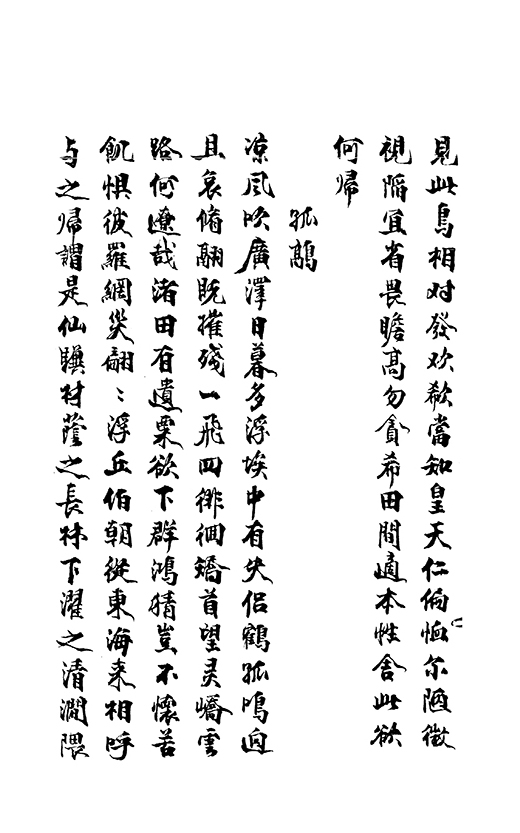 見此鳥相对發欢欷當知皇天仁俯恤尔陋微
視陷宜省畏瞻高勿貪希田間適本性舍此欲
何歸
孤鶴
凉风吹廣澤日暮多浮埃中有失侣鶴孤鳴迥
且哀脩翮既摧殘一飛四徘徊矯首望灵嶠雲
路何遼哉渚田有遺粟欲下群鴻猜豈不懷苦
飢惧彼羅網災翩〻浮丘伯朝從東海来相呼
与之歸謂是仙驥材蔭之長林下濯之清澗隈